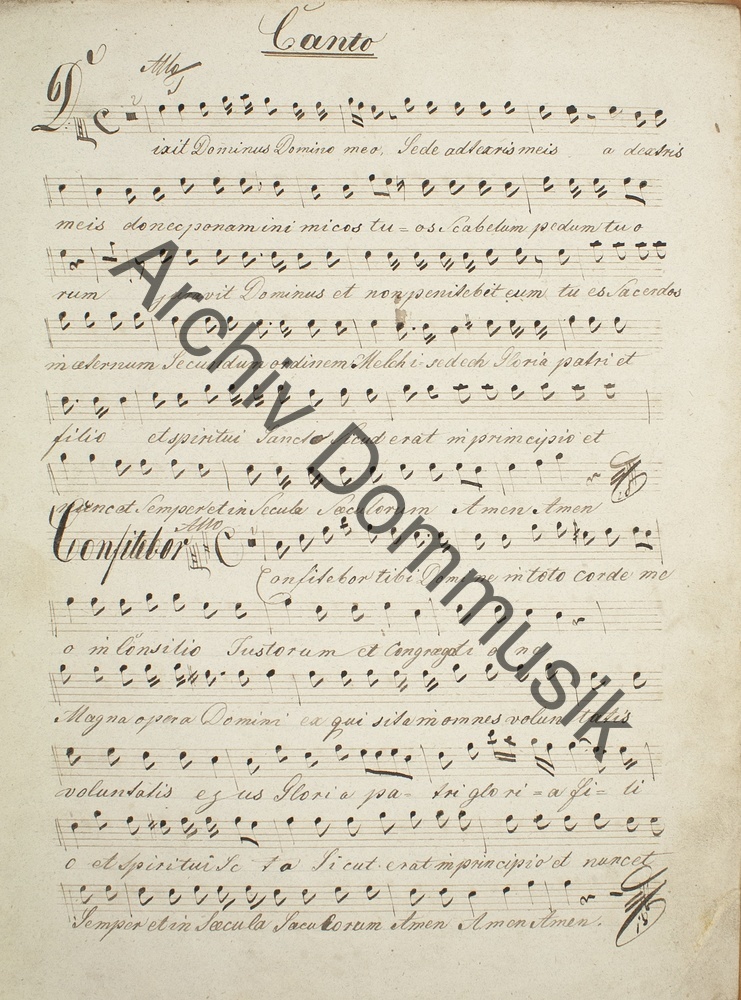 Canto
Allo
Dixit Dominus Domino meo, Sede adtexris meis a dextris
meis donec ponam ini micos tu=os Scabelum pedum tuo
rum Dominus et non penitebit eum tu es Sacerdos
in æternum Secundum ordinem Melchisedech Gloria patri et
filio et spiritui Sancto Sicud erat in principio et
nunc et Semper et in Secula Sæculorum Amen Amen
Allo
Confitebor Confitebor tibi Domine in toto corde me
o in Consilio Iustorum et Congregati o ne
Magna opera Domini ex qui sita in omnes volun tatis
voluntatis ejus Gloria pa= tri glori=a fi= li
o et spiritui Sc to Sicut erat in principio et nunc et
Semper et in Sæcula Sæculorum Amen Amen Amen.
Archiv Dommusik